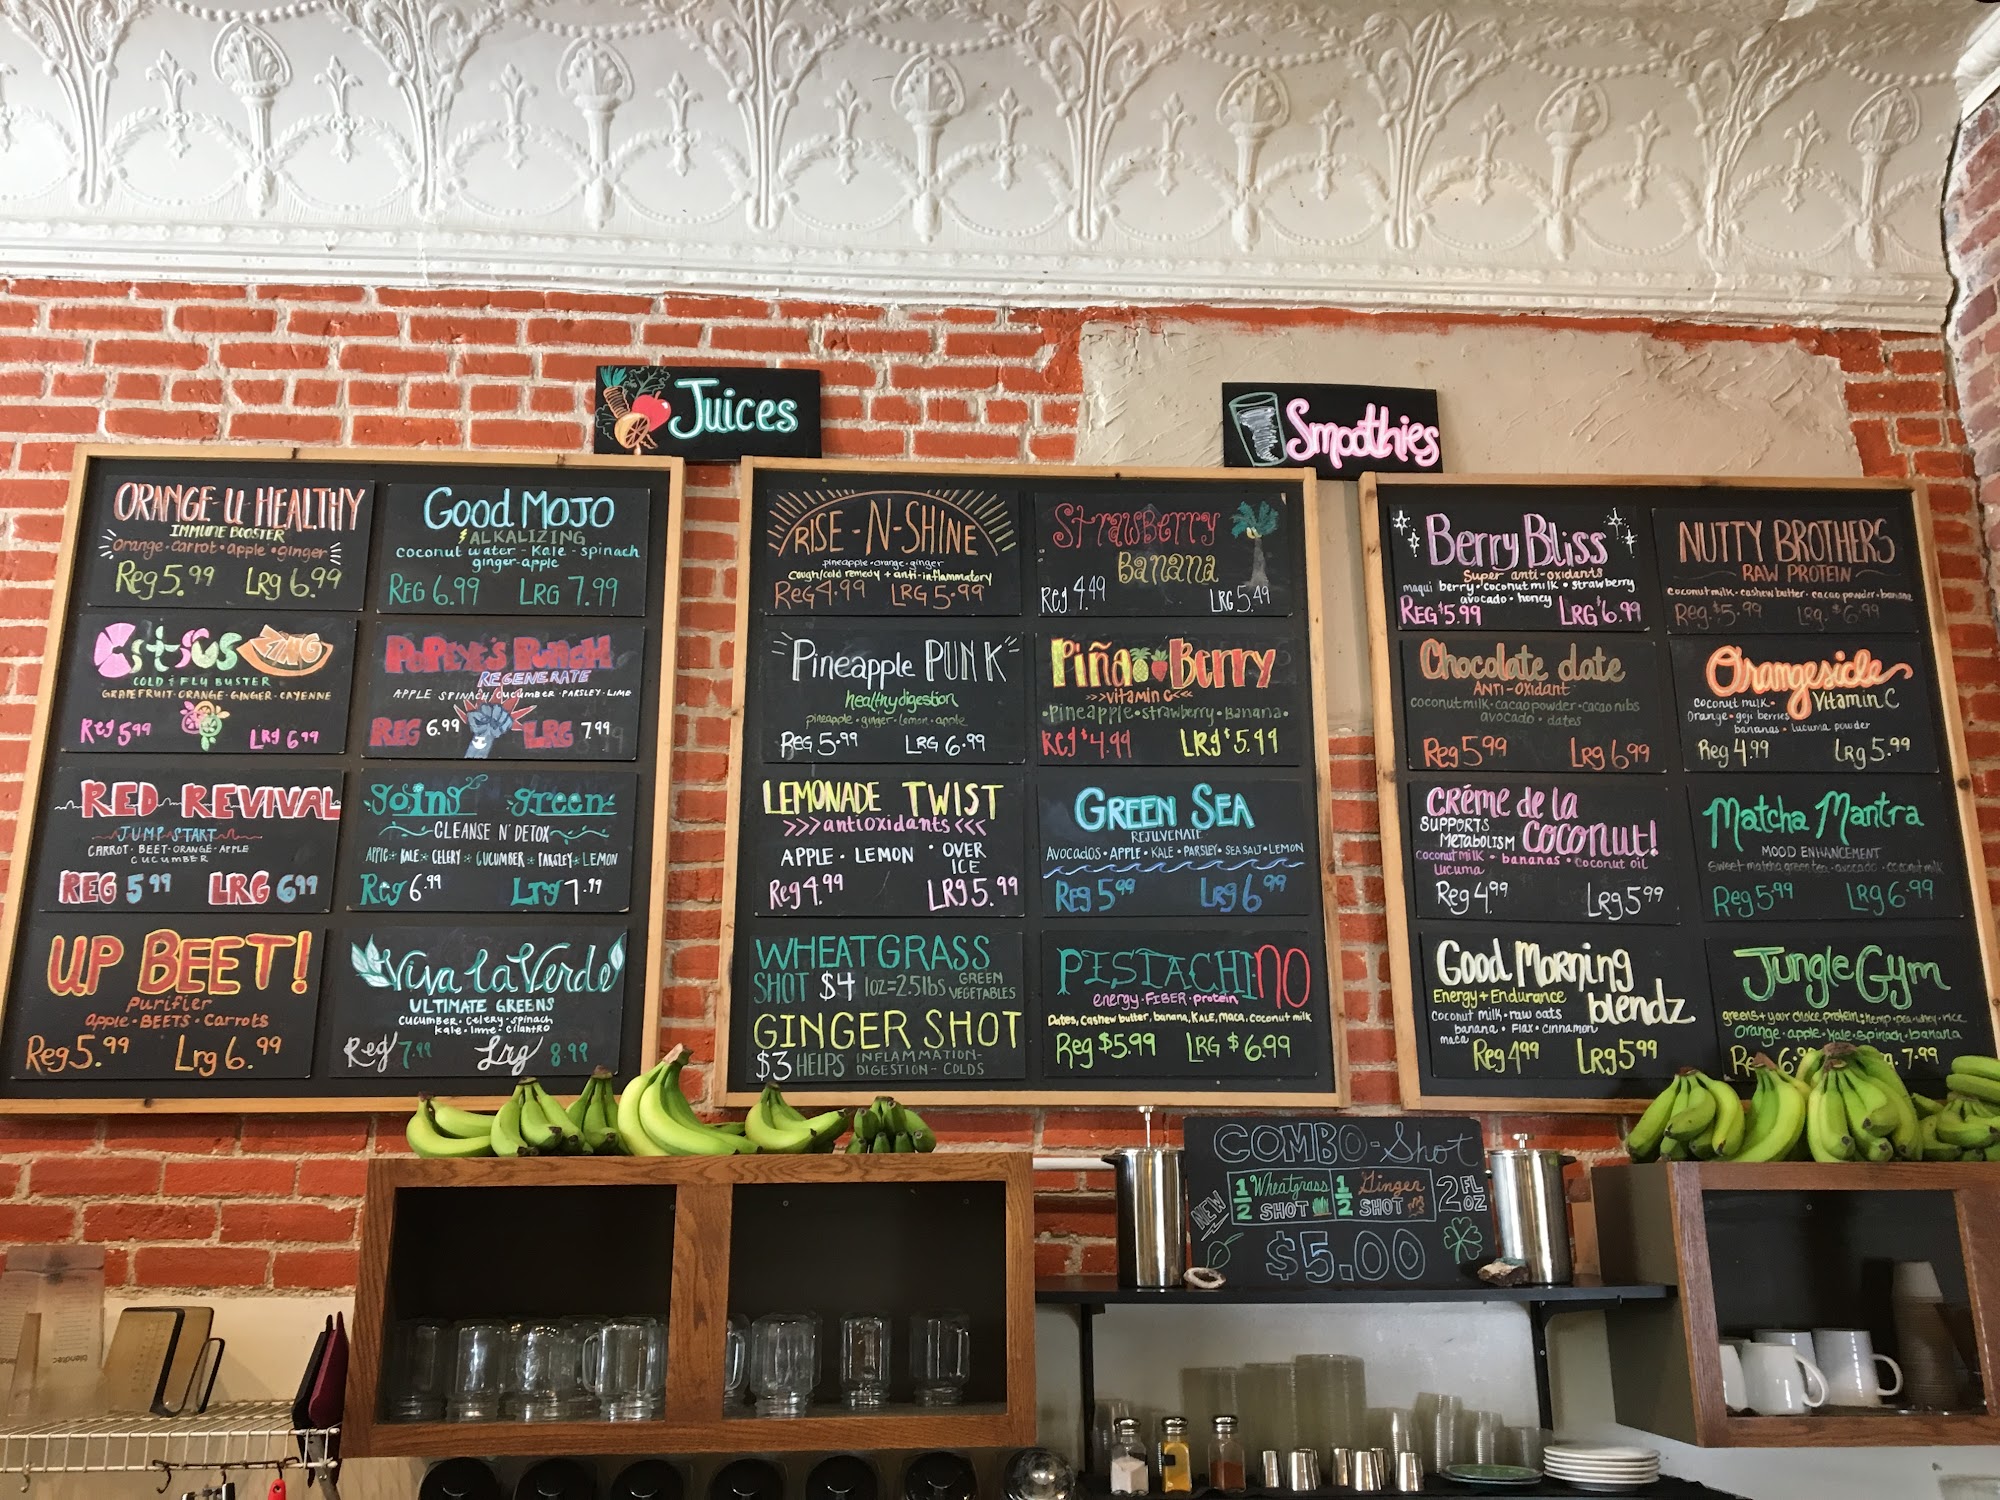 Juices
Smoothies
ORANGE-U-HEALTHY
IMMUNE BOOSTER
orange·carrot·apple·ginger
Reg 5.99 Lrg 6.99
Good MOJO
ALKALIZING
coconut water - Kale - spinach
ginger-apple
REG 6.99 LRG 7.99
Citrus ZING
COLD & FLU BUSTER
GRAPEFRUIT·ORANGE·GINGER·CAYENNE
Reg 5.99 Lrg 6.99
POPEYE'S PUNCH
REGENERATE
APPLE SPINACH/CUCUMBER·PARSLEY·LIME
REG 6.99 LRG 7.99
RED REVIVAL
JUMP START
CARROT·BEET·ORANGE·APPLE
CUCUMBER
REG 5.99 LRG 6.99
going green
CLEANSE N' DETOX
APPLE * KALE * CELERY * CUCUMBER * PARSLEY * LEMON
Reg 6.99 Lrg 7.99
UP BEET!
Purifier
apple·BEETS·Carrots
Reg 5.99 Lrg 6.99
Viva la Verde
ULTIMATE GREENS
CUCUMBER·Celery·spinach
Kale·lime·cilantro
Reg 7.99 Lrg 8.99
RISE-N-SHINE
pineapple·orange·ginger
Cough/cold remedy + anti-inflammatory
REG 4.99 LRG 5.99
STRAWBERRY
BANANA
Reg 4.49 LRG 5.49
Pineapple PUNK
healthy digestion
pineapple·ginger·lemon·apple
REG 5.99 LRG 6.99
Piña Berry
>>>vitamin c<<<
·Pineapple·strawberry·Banana·
Reg $4.99 LRg $5.99
LEMONADE TWIST
>>>antioxidants<<<
APPLE·LEMON·OVER
ICE
Reg 4.99 LRg 5.99
GREEN SEA
REJUVENATE
AVOCADOS·APPLE·KALE·PARSLEY·SEA SALT·LEMON
Reg 5.99 Lrg 6.99
WHEATGRASS
SHOT $4 1oz=2.5lbs GREEN
VEGETABLES
GINGER SHOT
$3 HELPS INFLAMMATION-
DIGESTION-COLDS
PISTACHI-NO
energy·FIBER·protein
Dates, cashew butter, banana, KALE, maca, coconut milk
Reg $5.99 LRG $6.99
Berry Bliss
Super anti-oxidants
maqui berry·coconut milk·strawberry
avocado·honey
REG $5.99 LRG $6.99
NUTTY BROTHERS
RAW PROTEIN
coconut milk·cashew butter·cacao powder·banana
Reg. $5.99 Lrg. $6.99
Chocolate date
ANTI-OXIDANT
coconut milk·cacao powder·cacao nibs
avocado·dates
Reg 5.99 Lrg 6.99
Orangesicle
coconut milk· Vitamin C
Orange·goji berries
bananas·lucuma powder
Reg 4.99 Lrg 5.99
CRÉME de la
COCONUT!
SUPPORTS
METABOLISM
coconut milk·bananas·coconut oil
Lucuma
Reg 4.99 Lrg 5.99
Matcha Mantra
MOOD ENHANCEMENT
sweet matcha green tea·avocado·coconut milk
Reg 5.99 Lrg 6.99
Good Morning
blendz
Energy+Endurance
coconut milk·raw oats
banana·Flax·cinnamon
maca
Reg 4.99 Lrg 5.99
Jungle Gym
greens+your choice protein: hemp·pea·whey·rice
Orange·apple·kale·spinach·banana
7.99
COMBO-Shot
NEW
1/2 Wheatgrass SHOT 1/2 Ginger SHOT 2 FL OZ
$5.00